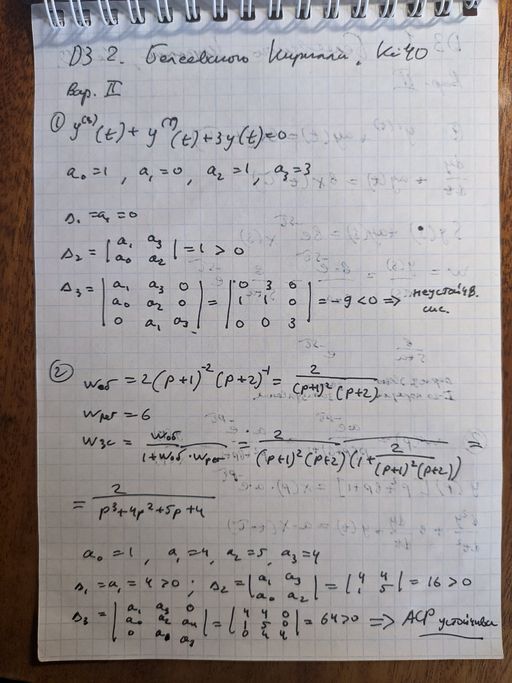 ДЗ 2. Белсевского Кирилла, Кі40
Вар. II
① y⁽³⁾(t) + y⁽¹⁾(t) + 3y(t) = 0
a₀ = 1, a₁ = 0, a₂ = 1, a₃ = 3
Δ₁ = a₁ = 0
Δ₂ = | a₁ a₃ ; a₀ a₂ | = 1 > 0
Δ₃ = | a₁ a₃ 0 ; a₀ a₂ 0 ; 0 a₁ a₃ | = | 0 3 0 ; 1 1 0 ; 0 0 3 | = -9 < 0 => неустойчив. сис.
② Wоб = 2(p+1)⁻²(p+2)⁻¹ = 2/((p+1)²(p+2))
Wрег = 6
Wзс = Wоб/(1+Wоб·Wрег) = 2/((p+1)²(p+2)(1+2/((p+1)²(p+2)))) =
= 2/(p³+4p²+5p+4)
a₀ = 1, a₁ = 4, a₂ = 5, a₃ = 4
Δ₁ = a₁ = 4 > 0; Δ₂ = | a₁ a₃ ; a₀ a₂ | = | 4 4 ; 1 5 | = 16 > 0
Δ₃ = | a₁ a₃ 0 ; a₀ a₂ a₄ ; 0 a₁ a₃ | = | 4 4 0 ; 1 5 0 ; 0 4 4 | = 64 > 0 => АСР устойчива